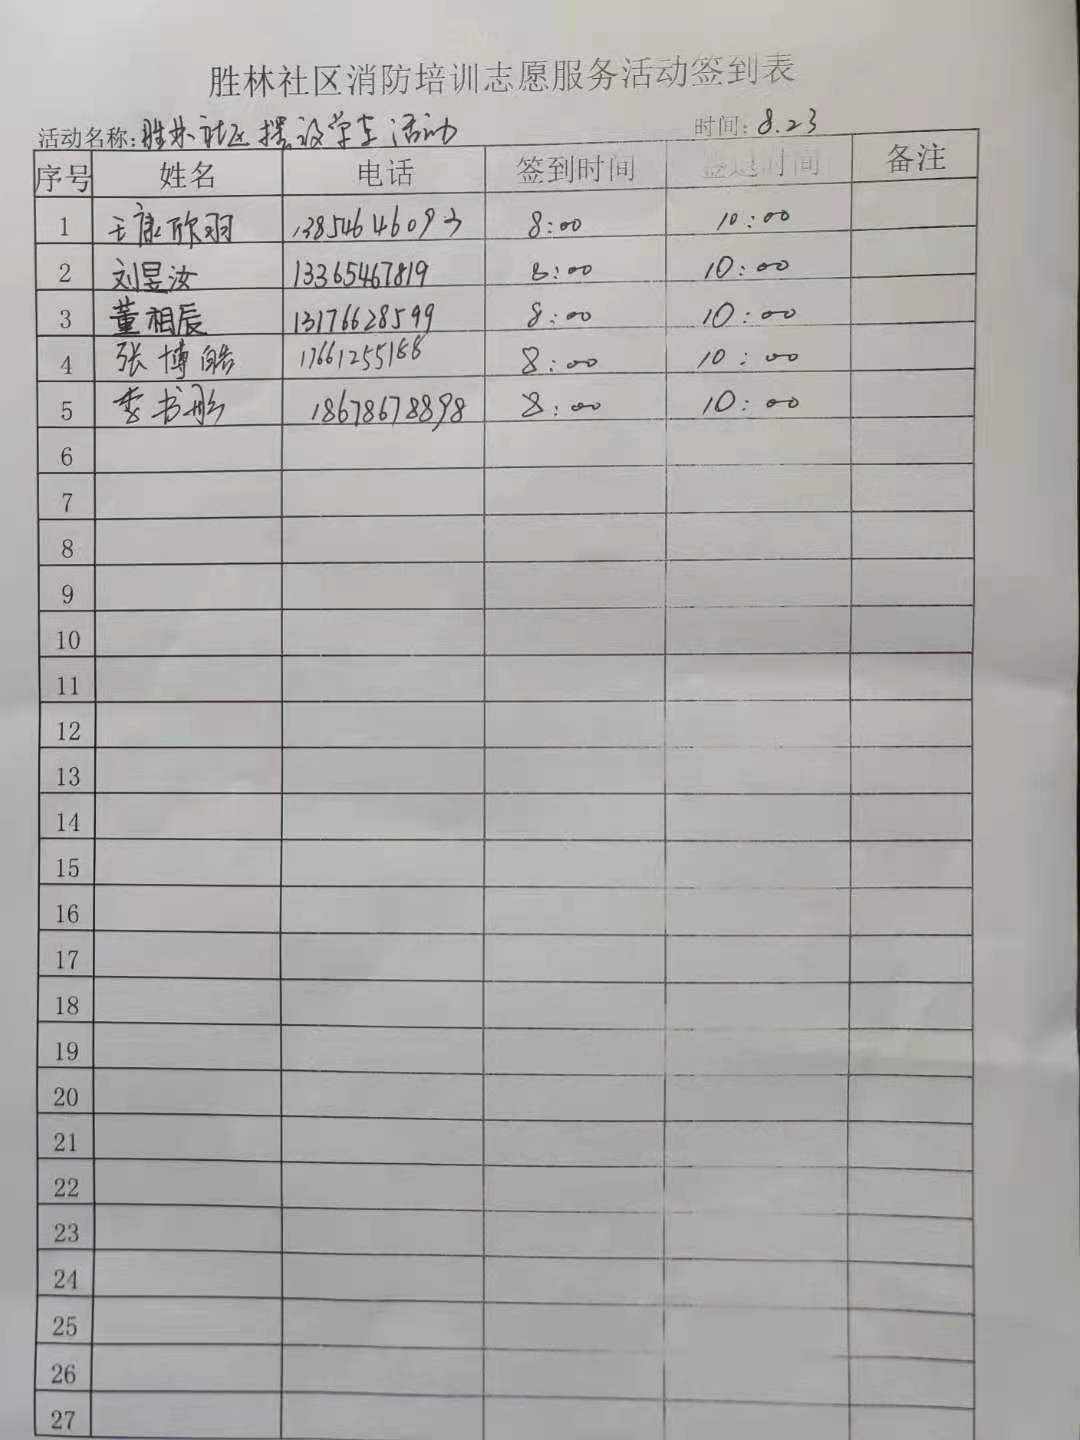 胜林社区消防培训志愿服务活动签到表
活动名称:胜林社区摆设学车活动 时间:8.23
序号 姓名 电话 签到时间 签退时间 备注
1 王康欣羽 8:00 10:00
2 刘昱汝 13365467819 8:00 10:00
3 董相辰 13176628599 8:00 10:00
4 张博皓 17661255188 8:00 10:00
5 李书彤 18678678898 8:00 10:00
6
7
8
9
10
11
12
13
14
15
16
17
18
19
20
21
22
23
24
25
26
27